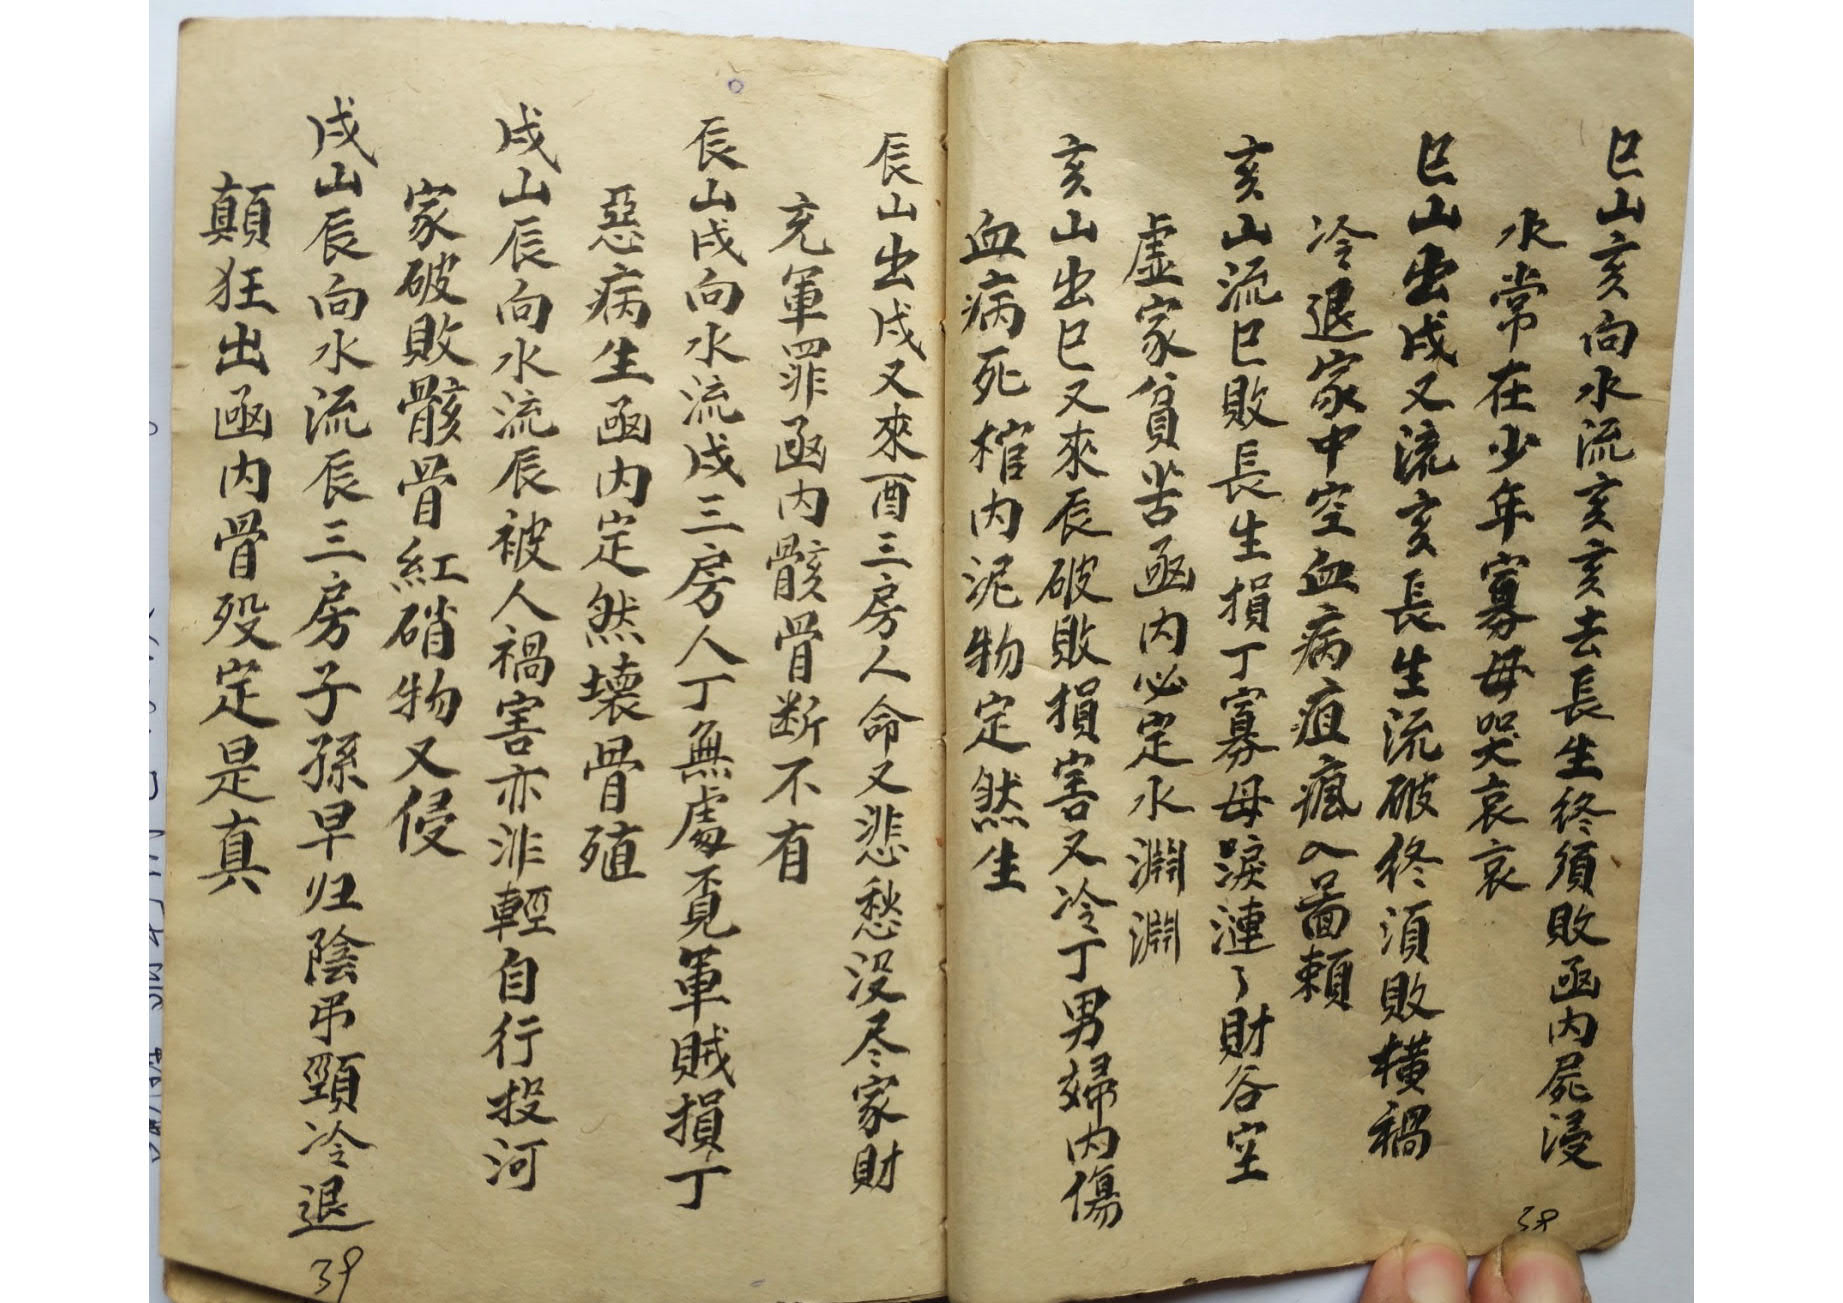 巳山亥向水流亥亥去長生終須敗凾内屍浸
水常在少年寡母哭哀哀
巳山出戌又流亥長生流破終須敗橫禍
冷退家中空血病疽瘋入啚賴
亥山流巳敗長生損丁寡母淚漣了財谷空
虛家貧苦凾内必定水淵淵
亥山出巳又來辰破敗損害又冷丁男婦内傷
血病死棺内泥物定然生
38
辰山出戌又來酉三房人命又悲愁没尽家財
充軍罪凾内骸骨断不有
辰山戌向水流戌三房人丁無處覔軍賊損丁
惡病生凾内定然壞骨殖
戌山辰向水流辰被人禍害亦非輕自行投河
家破敗骸骨紅硝物又侵
戌山辰向水流辰三房子孫早归陰吊頸冷退
顛狂出凾内骨殁定是真
39